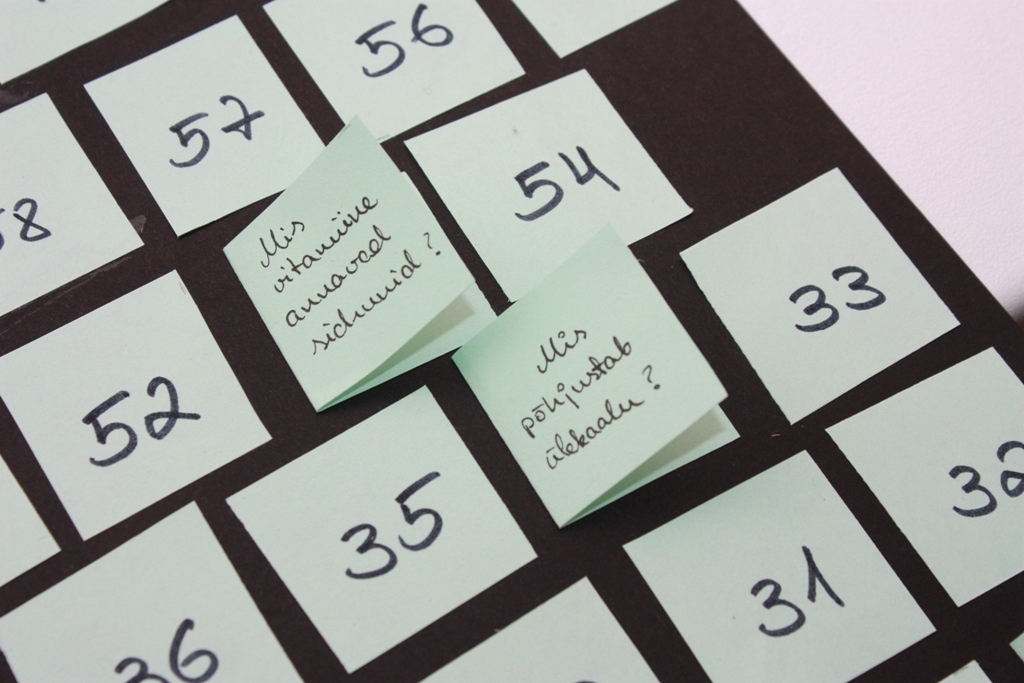 56
57
54
58
Mis
vitamiine
annavad
sidrunid?
33
Mis
põhjustab
ülekaalu?
52
32
35
31
36